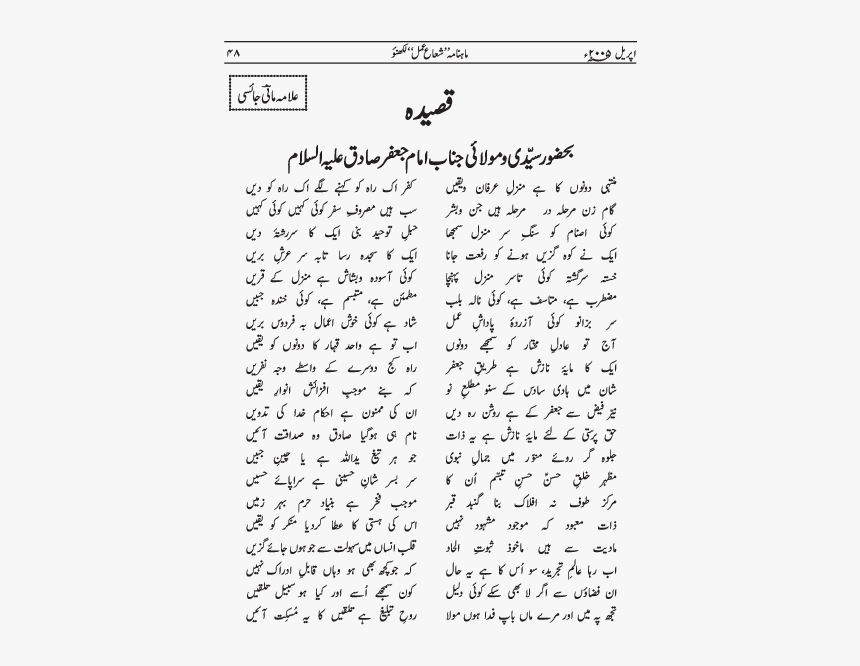 اپریل ۲۰۰۵ء ماہنامہ ’’شعاع عمل‘‘ لکھنؤ ۴۸
علامہ مانیؔ جائسی
قصیدہ
بحضور سیّدی و مولائی جناب امام جعفر صادق علیہ السلام
منتہی دونوں کا ہے منزلِ عرفان ویقیں کفر اک راہ کو کہنے لگے اک راہ کو دیں
گام زن مرحلہ در مرحلہ ہیں جن وبشر سب ہیں مصروفِ سفر کوئی کہیں کوئی کہیں
کوئی اصنام کو سنگِ سر منزل سمجھا حبلِ توحید بنی ایک کا سررشتۂ دیں
ایک نے کوہ گزیں ہونے کو رفعت جانا ایک کا سجدہ رسا تابہ سر عرشِ بریں
خستہ سرگشتہ کوئی تاسر منزل پہنچا کوئی آسودہ وبشاش ہے منزل کے قریں
مضطرب ہے، متاسف ہے، کوئی نالہ بلب مطمئن ہے، متبسم ہے، کوئی خندہ جبیں
سر بزانو کوئی آزردۂ پاداشِ عمل شاد ہے کوئی خوش اعمال بہ فردوس بریں
آج تو عادلِ مختار کو سمجھے دونوں اب تو ہے واحد قہار کا دونوں کو یقیں
ایک کا مایۂ نازش ہے طریقِ جعفر راہ کج دوسرے کے واسطے وجہ نفریں
شان میں ہادی سادس کے سنو مطلعِ نو کہ بنے موجبِ افزائش انوارِ یقیں
نیّر فیض سے جعفر کے ہے روشن رہ دیں ان کی ممنون ہے احکام خدا کی تدویں
حق پرستی کے لئے مایۂ نازش ہے یہ ذات نام ہی ہوگیا صادق وہ صداقت آئیں
جلوہ گر روئے منور میں جمالِ نبوی جو ہر تیغ یداللہ ہے یا چینِ جبیں
مظہر خلقِ حسنؑ حسنِ تبسّم اُن کا سر بسر شانِ حسینی ہے سراپائے حسیں
مرکز طوف نہ افلاک بنا گنبد قبر موجب فخر ہے بنیاد حرم بہر زمیں
ذات معبود کہ موجود مشہود نہیں اس کی ہستی کا عطا کردیا منکر کو یقیں
مادیت سے ہیں ماخوذ ثبوتِ الحاد قلب انساں میں سہولت سے جو ہوں جائے گزیں
اب رہا عالمِ تجرید، سو اُس کا ہے یہ حال کہ جو کچھ بھی ہو وہاں قابلِ ادراک نہیں
ان فضاؤں سے اگر لا بھی سکے کوئی دلیل کون سمجھے اُسے اور کیا ہو سبیلِ تلقیں
تجھ پہ میں اور مرے ماں باپ فدا ہوں مولا روحِ تبلیغ ہے تلقیں کا یہ مُسکِت آئیں